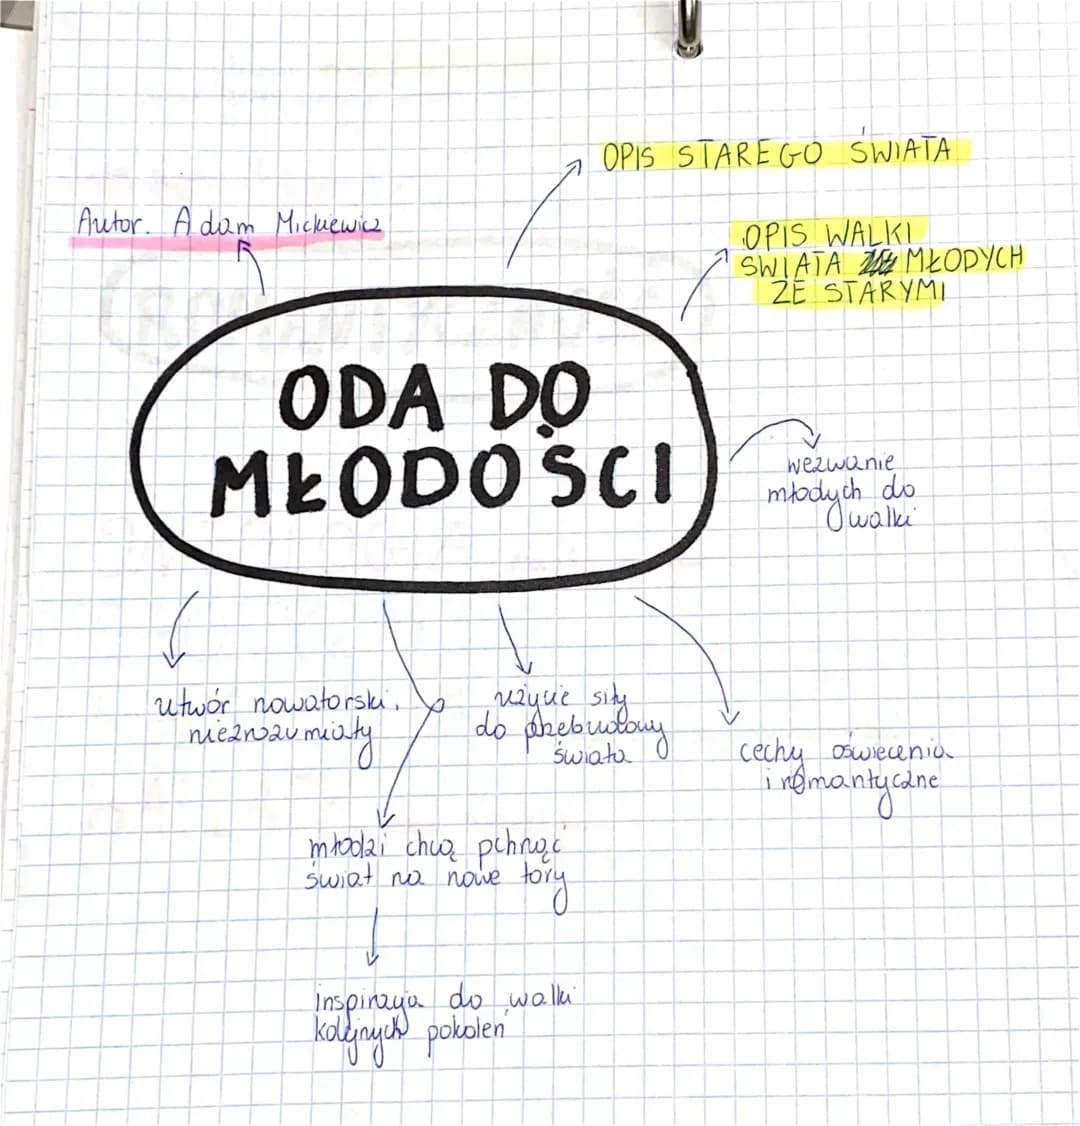 OPIS STAREGO ŚWIATA
Autor. Adam Mickiewicz
OPIS WALKI
ŚWIATA MŁODYCH
ZE STARYMI
ODA DO
MŁODOŚCI
wezwanie
młodych do
walki
utwór nowatorski,
niezrozumiały
użycie siły
do przebudowy
świata
cechy oświecenia
i romantyczne
młodzi chcą pchnąć
świat na nowe tory
inspiracja do walki
kolejnych pokoleń